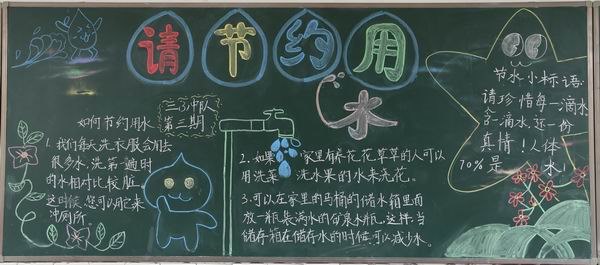 请节约用
水
三(3)中队
第三期
如何节约用水
1.我们每天洗衣服会用去
很多水,洗第一遍时
的水相对比较脏,
这时候,您可以用它来
冲厕所。
2.如果家里有养花花草草的人可以
用洗菜、洗水果的水来浇花。
3.可以在家里的马桶的储水箱里面
放一瓶装满水的矿泉水瓶,这样,当
储存箱在储存水的时候,可以减少水。
节水小标语:
请珍惜每一滴水
含一滴水,还一份
真情!人体
70%是水!